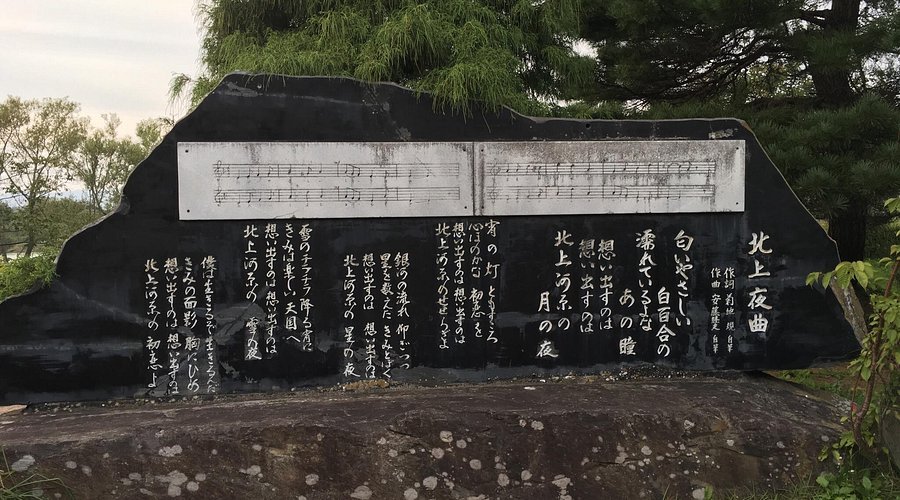 北上夜曲
作詞 菊地 規 自筆
作曲 安藤睦夫 自筆
匂いやさしい
白百合の
濡れているよな
あの瞳
想い出すのは
想い出すのは
北上河原の
月の夜
宵の灯 ともすころ
心ほのかな 初恋を
想い出すのは 想い出すのは
北上河原の せせらぎよ
銀河の流れ 仰ぎつつ
星を数えた きみとぼく
想い出すのは 想い出すのは
北上河原の 星の夜
雪のチラチラ 降る宵に
きみは楽しい 天国へ
想い出すのは 想い出すのは
北上河原の 雪の夜
僕は生きるぞ 生きるんだ
きみの面影 胸にひめ
想い出すのは 想い出すのは
北上河原の 初恋よ